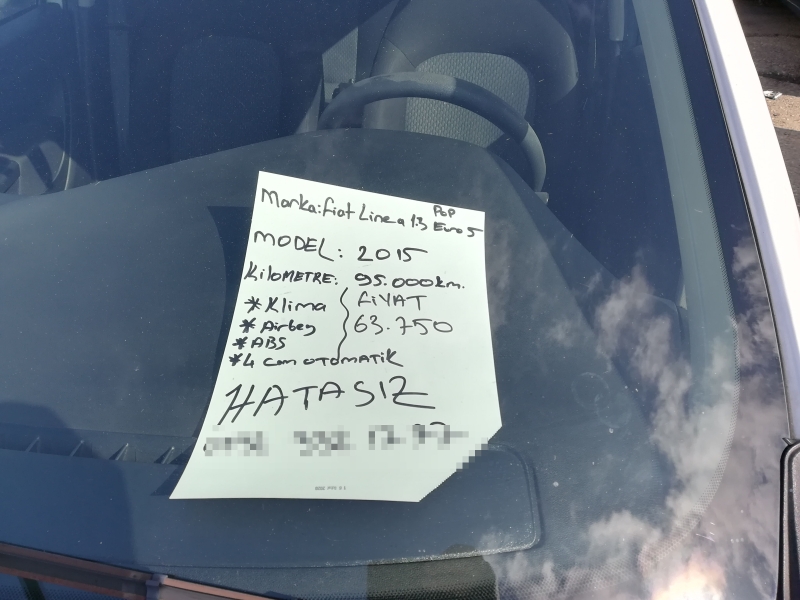 Marka: fiat Linea 1.3 Pop Euro 5
MODEL: 2015
KiLOMETRE: 95.000km.
* Klima
* Airbeg
* ABS
* 4 cam OTOMATiK
FiYAT
63.750
HATASIZ